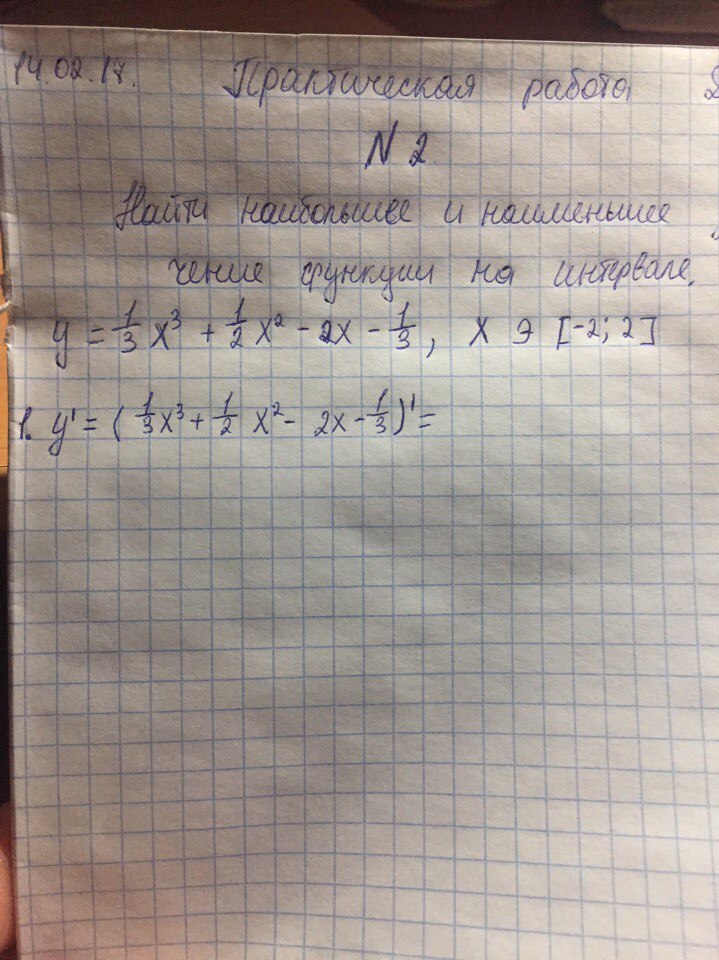 14.02.17. Практическая работа
N 2.
Найти наибольшее и наименьшее
чение функции на интервале.
y = 1/3 x³ + 1/2 x² - 2x - 1/3, x Э [-2; 2]
1. y' = ( 1/3 x³ + 1/2 x² - 2x - 1/3 )' =